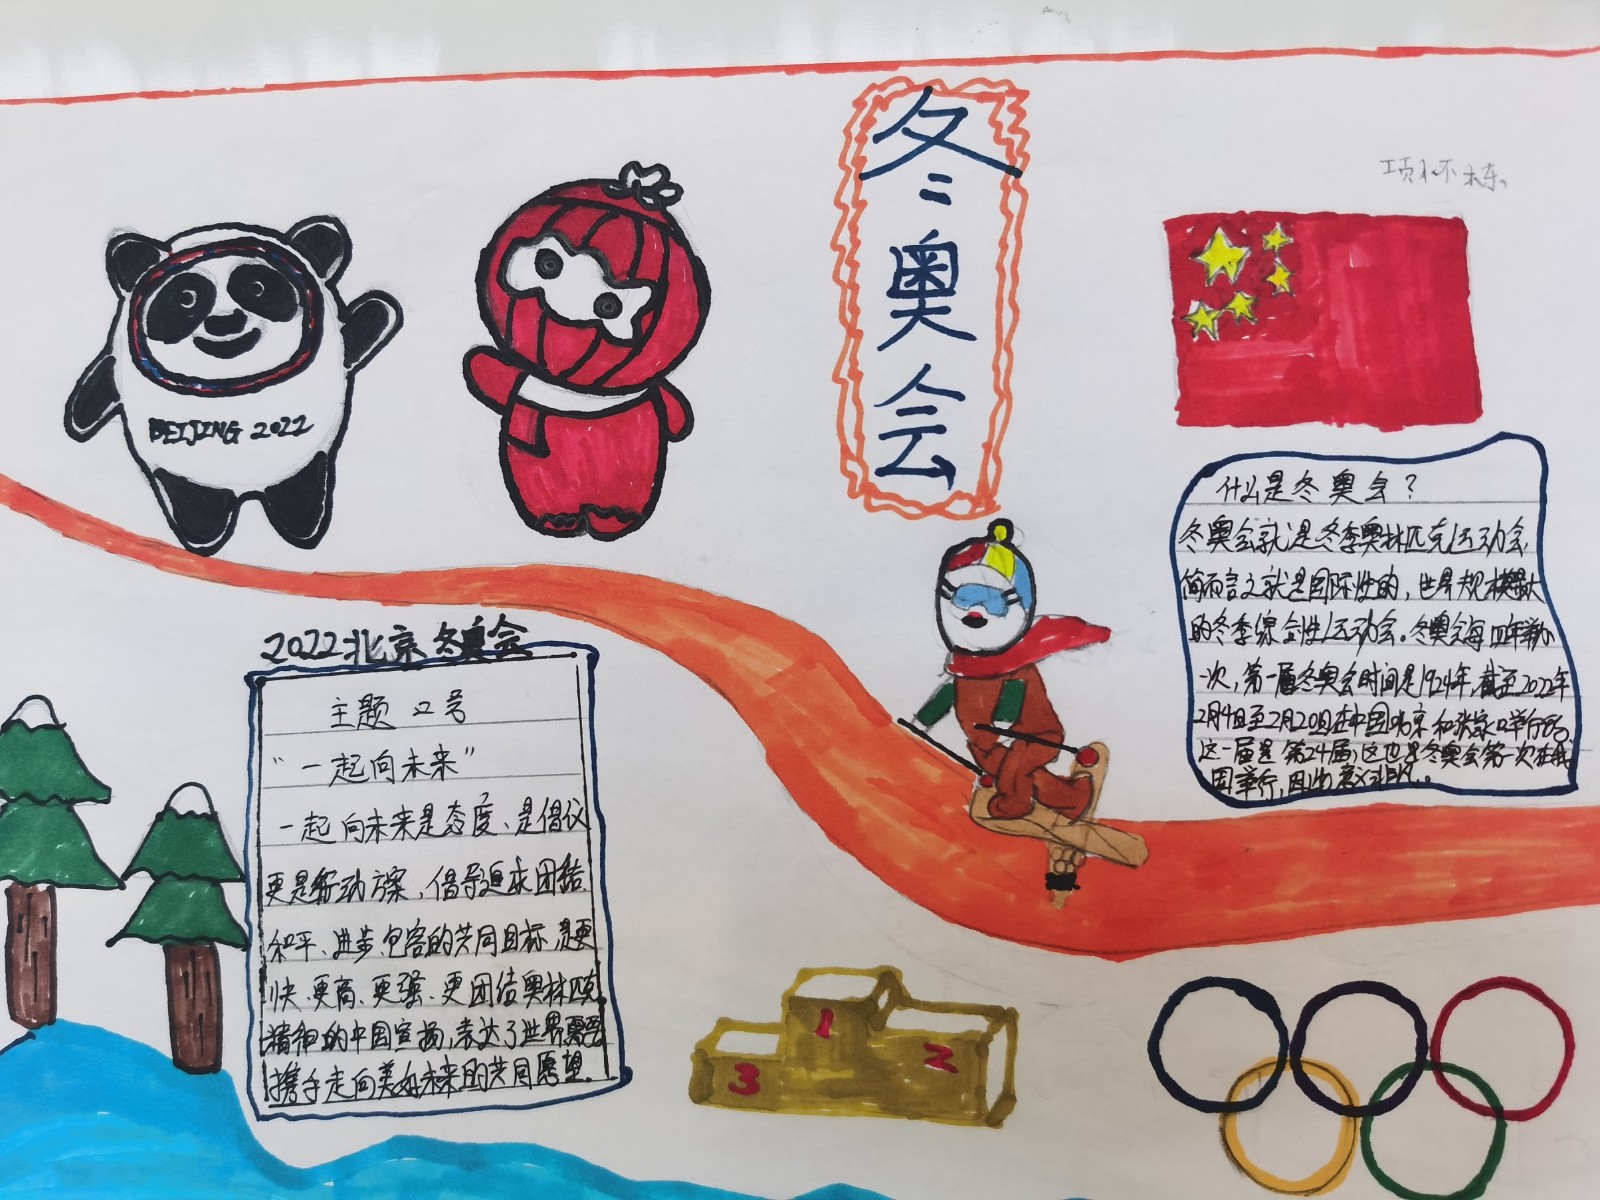 冬奥会
BEILJING 2022
什么是冬奥会？
冬奥会就是冬季奥林匹克运动会,
简而言之就是国际性的，世界规模最大
的冬季综合性运动会。冬奥会每四年举办
一次，第一届冬奥会时间是1924年，截至2022年
2月4日至2月20日在中国北京和张家口举行的
这一届是第24届，这也是冬奥会第一次在我
国举行，因此意义非凡。
2022北京冬奥会
主题口号
“一起向未来”
一起向未来是态度、是倡议
更是行动方案，倡导追求团结、
和平、进步、包容的共同目标，是更
快、更高、更强、更团结奥林匹克
精神的中国宣扬，表达了世界需要
携手走向美好未来的共同愿望。
1
2
3